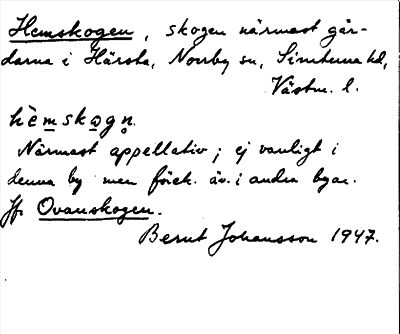 Hemskogen, skogen närmast går-
darna i Härsta, Norrby sn, Simtuna hd,
Västm. l.
hèmskogn̥
Närmast appellativ; ej vanligt i
denna by men förek. äv. i andra byar.
Jfr Ovanskogen.
Bernt Johansson 1947.